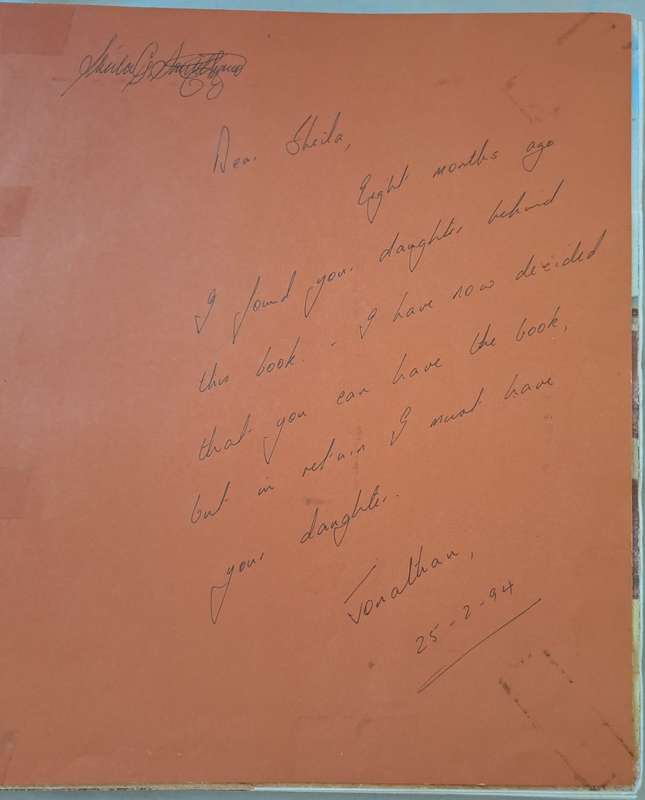 Sheila G.
Dear Sheila,
Eight months ago
I found your daughter behind
this book. - I have now decided
that you can have the book,
but in return I must have
your daughter.
Jonathan,
25-2-94